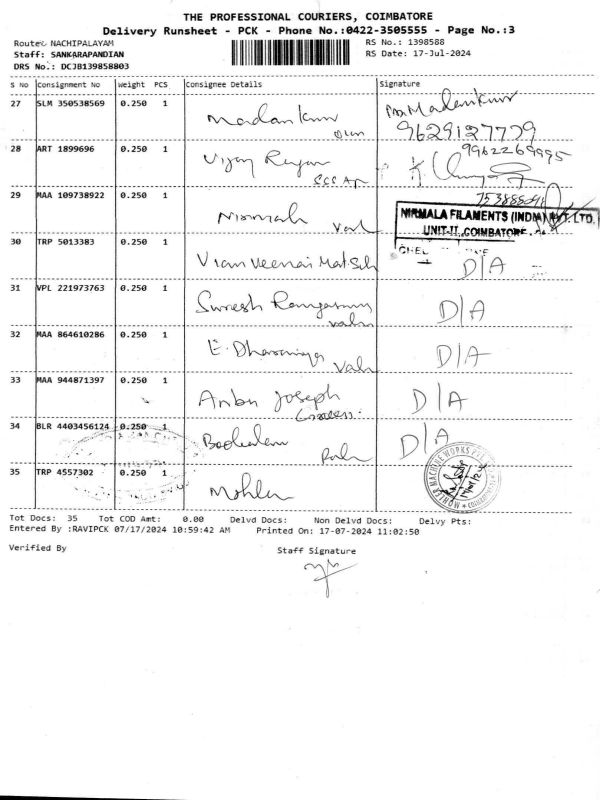 THE PROFESSIONAL COURIERS, COIMBATORE
Delivery Runsheet - PCK - Phone No.:0422-3505555 - Page No.:3
Route: NACHIPALAYAM
RS No.: 1398588
Staff: SANKARAPANDIAN
RS Date: 17-Jul-2024
DRS No.: DCJB139858803
S No Consignment No Weight PCS Consignee Details Signature
27 SLM 350538569 0.250 1 Madankum
9629127779
28 ART 1899696 0.250 1 Vijay
9962269995
29 MAA 109738922 0.250 1 Nirmala
NIRMALA FILAMENTS (INDIA) PVT. LTD.
UNIT-II, COIMBATORE
30 TRP 5013383 0.250 1 D/A
31 VPL 221973763 0.250 1 Suresh D/A
32 MAA 864610286 0.250 1 E. D/A
33 MAA 944871397 0.250 1 Anbu Joseph D/A
34 BLR 4403456124 0.250 1 D/A
35 TRP 4557302 0.250 1 Mohler
MOHLER MACHINE WORKS PVT LTD
Tot Docs: 35 Tot COD Amt: 0.00 Delvd Docs: Non Delvd Docs: Delvy Pts:
Entered By :RAVIPCK 07/17/2024 10:59:42 AM Printed On: 17-07-2024 11:02:50
Verified By
Staff Signature